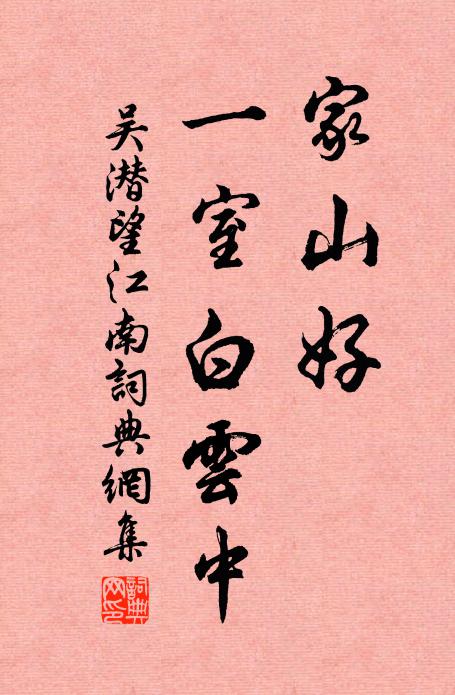 家山好
一室白雲中
吴潜望江南詞典網集
詞典網印